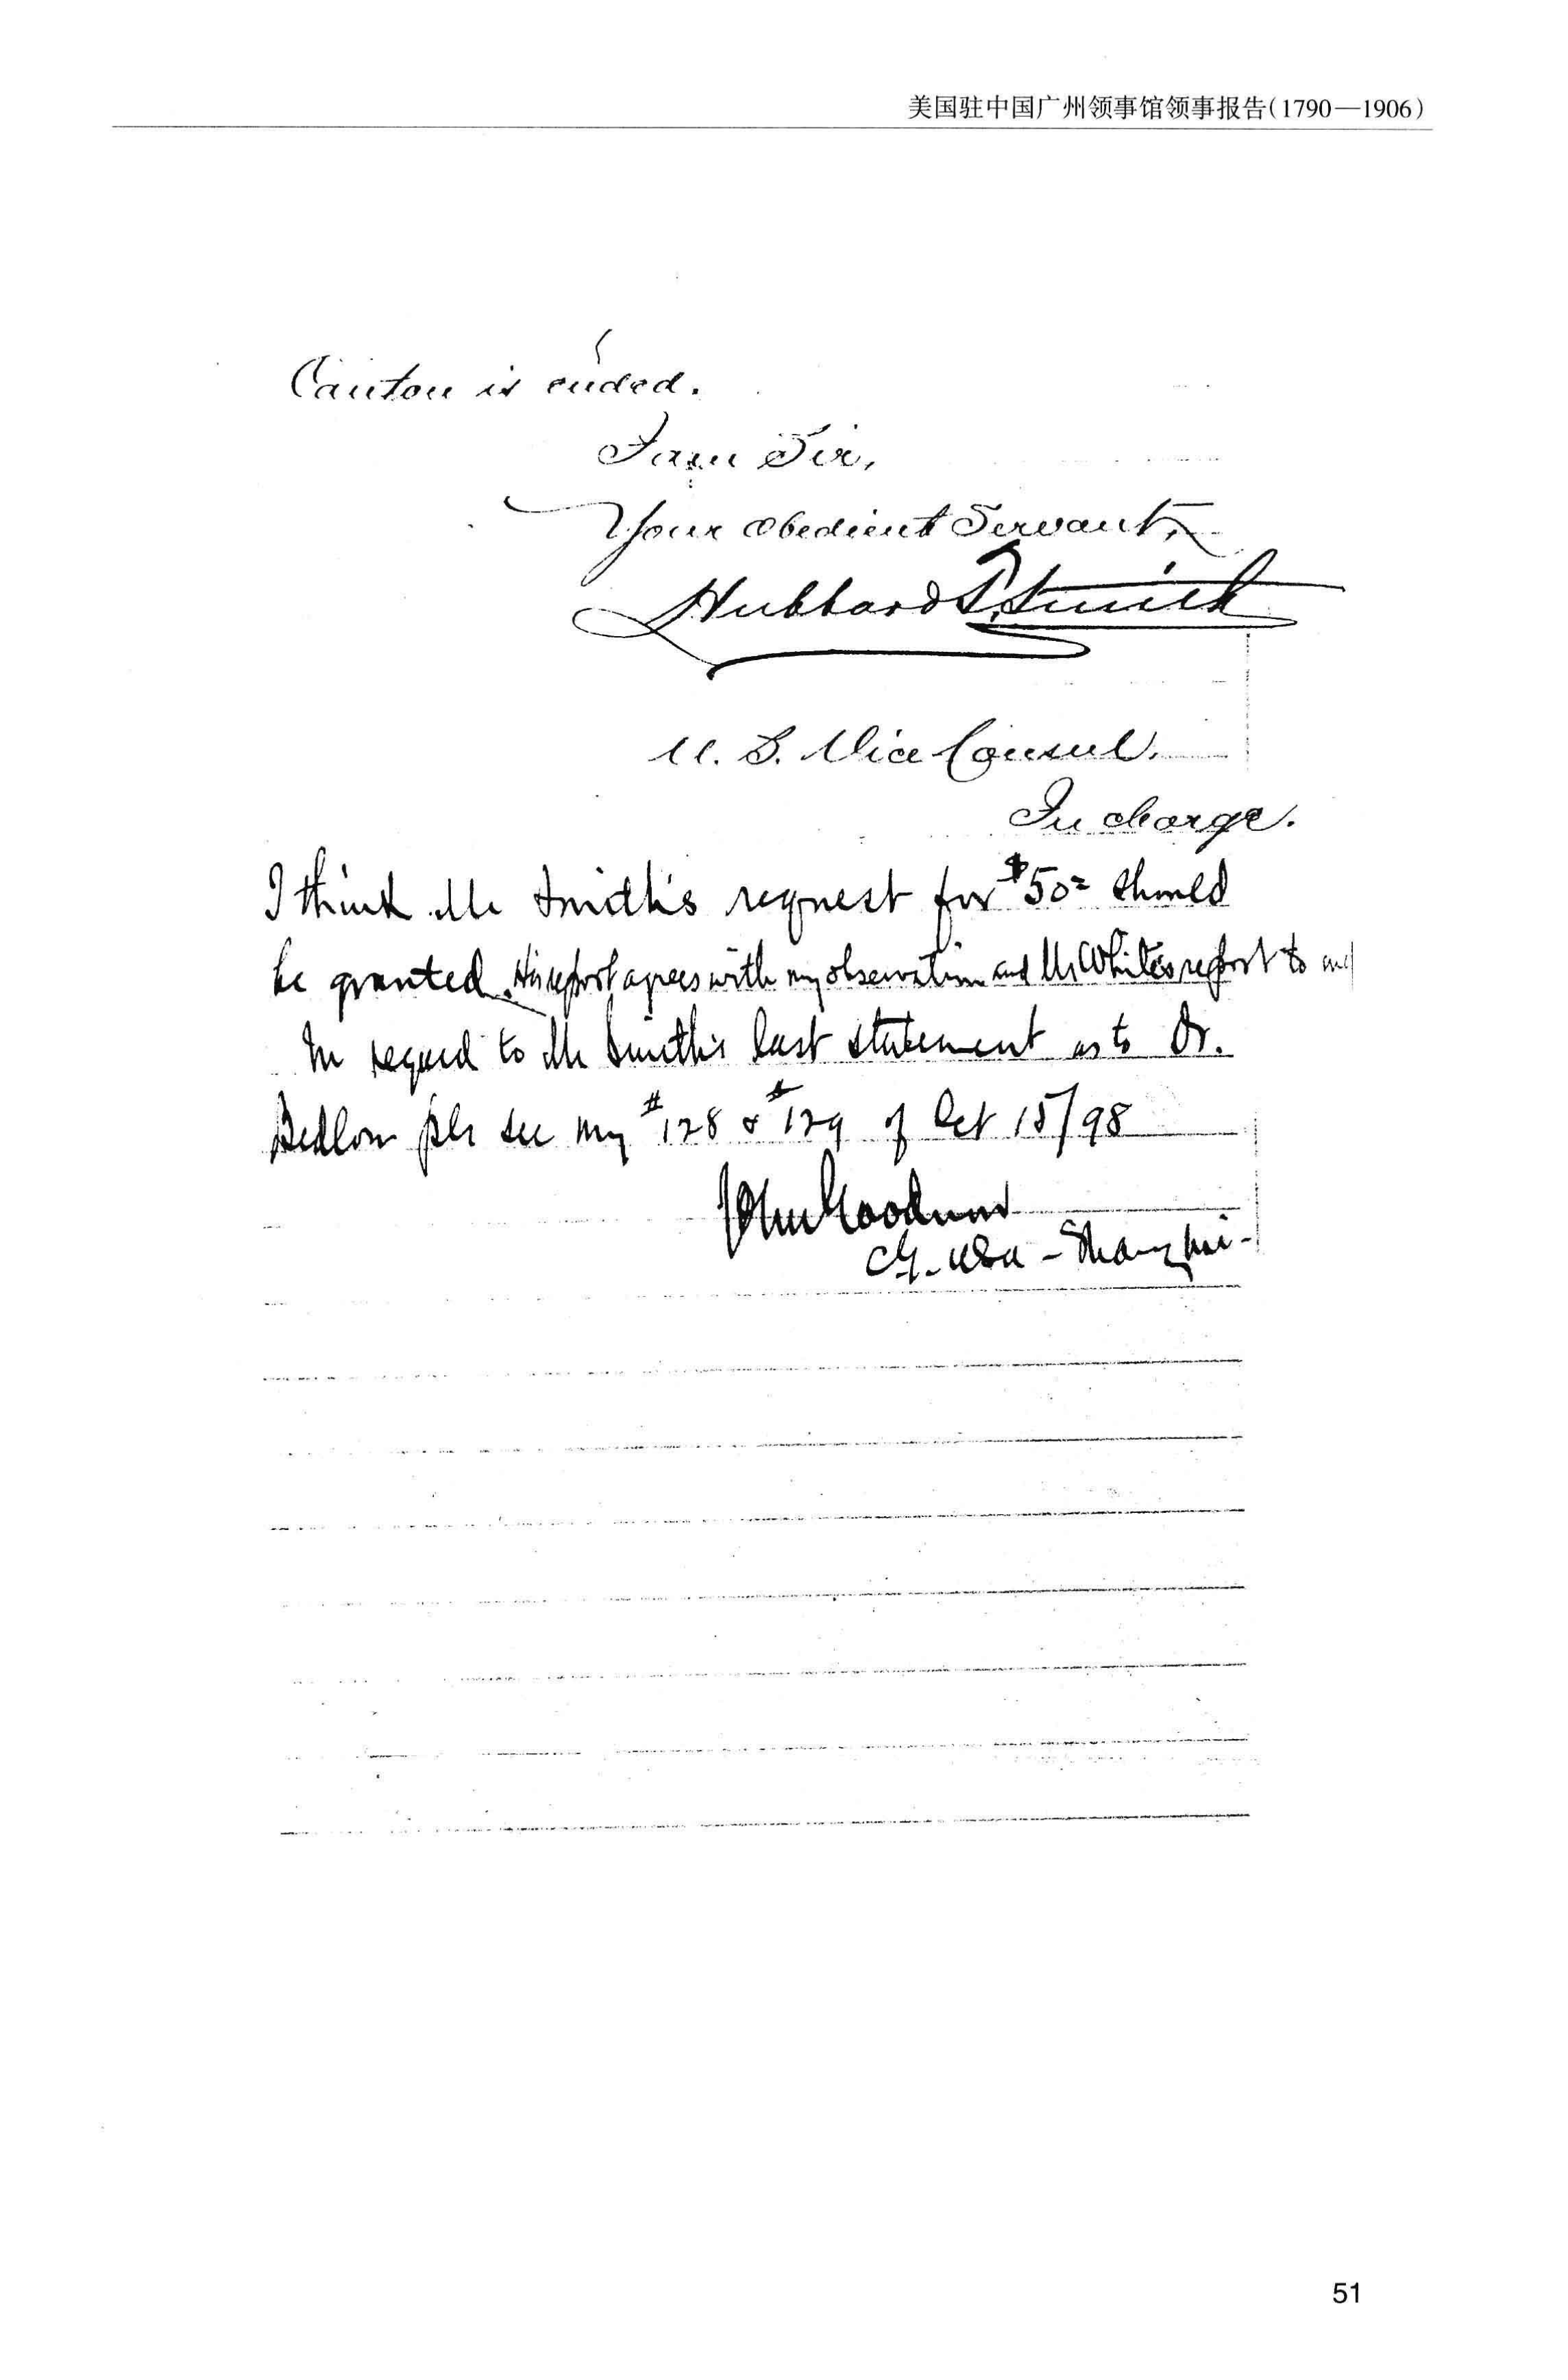 美国驻中国广州领事馆领事报告(1790—1906)
Canton is ended.
I am Sir,
Your obedient Servant,
Hubbard T. Smith
U. S. Vice Consul.
In charge.
I think Mr Smith's request for $50= should
be granted. His report agrees with my observation and Mr White's report to me
In regard to Mr Smith's last statement as to Dr.
Bedloe pls see my #128 & #129 of Oct 15/98
John Goodnow
C.G. USA - Shanghai -
51